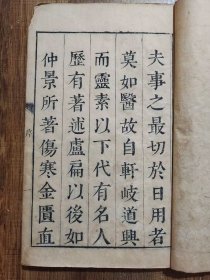 夫事之最切於日用者
莫如醫故自軒岐道興
而靈素以下代有名人
歷有著述盧扁以後如
仲景所著傷寒金匱直